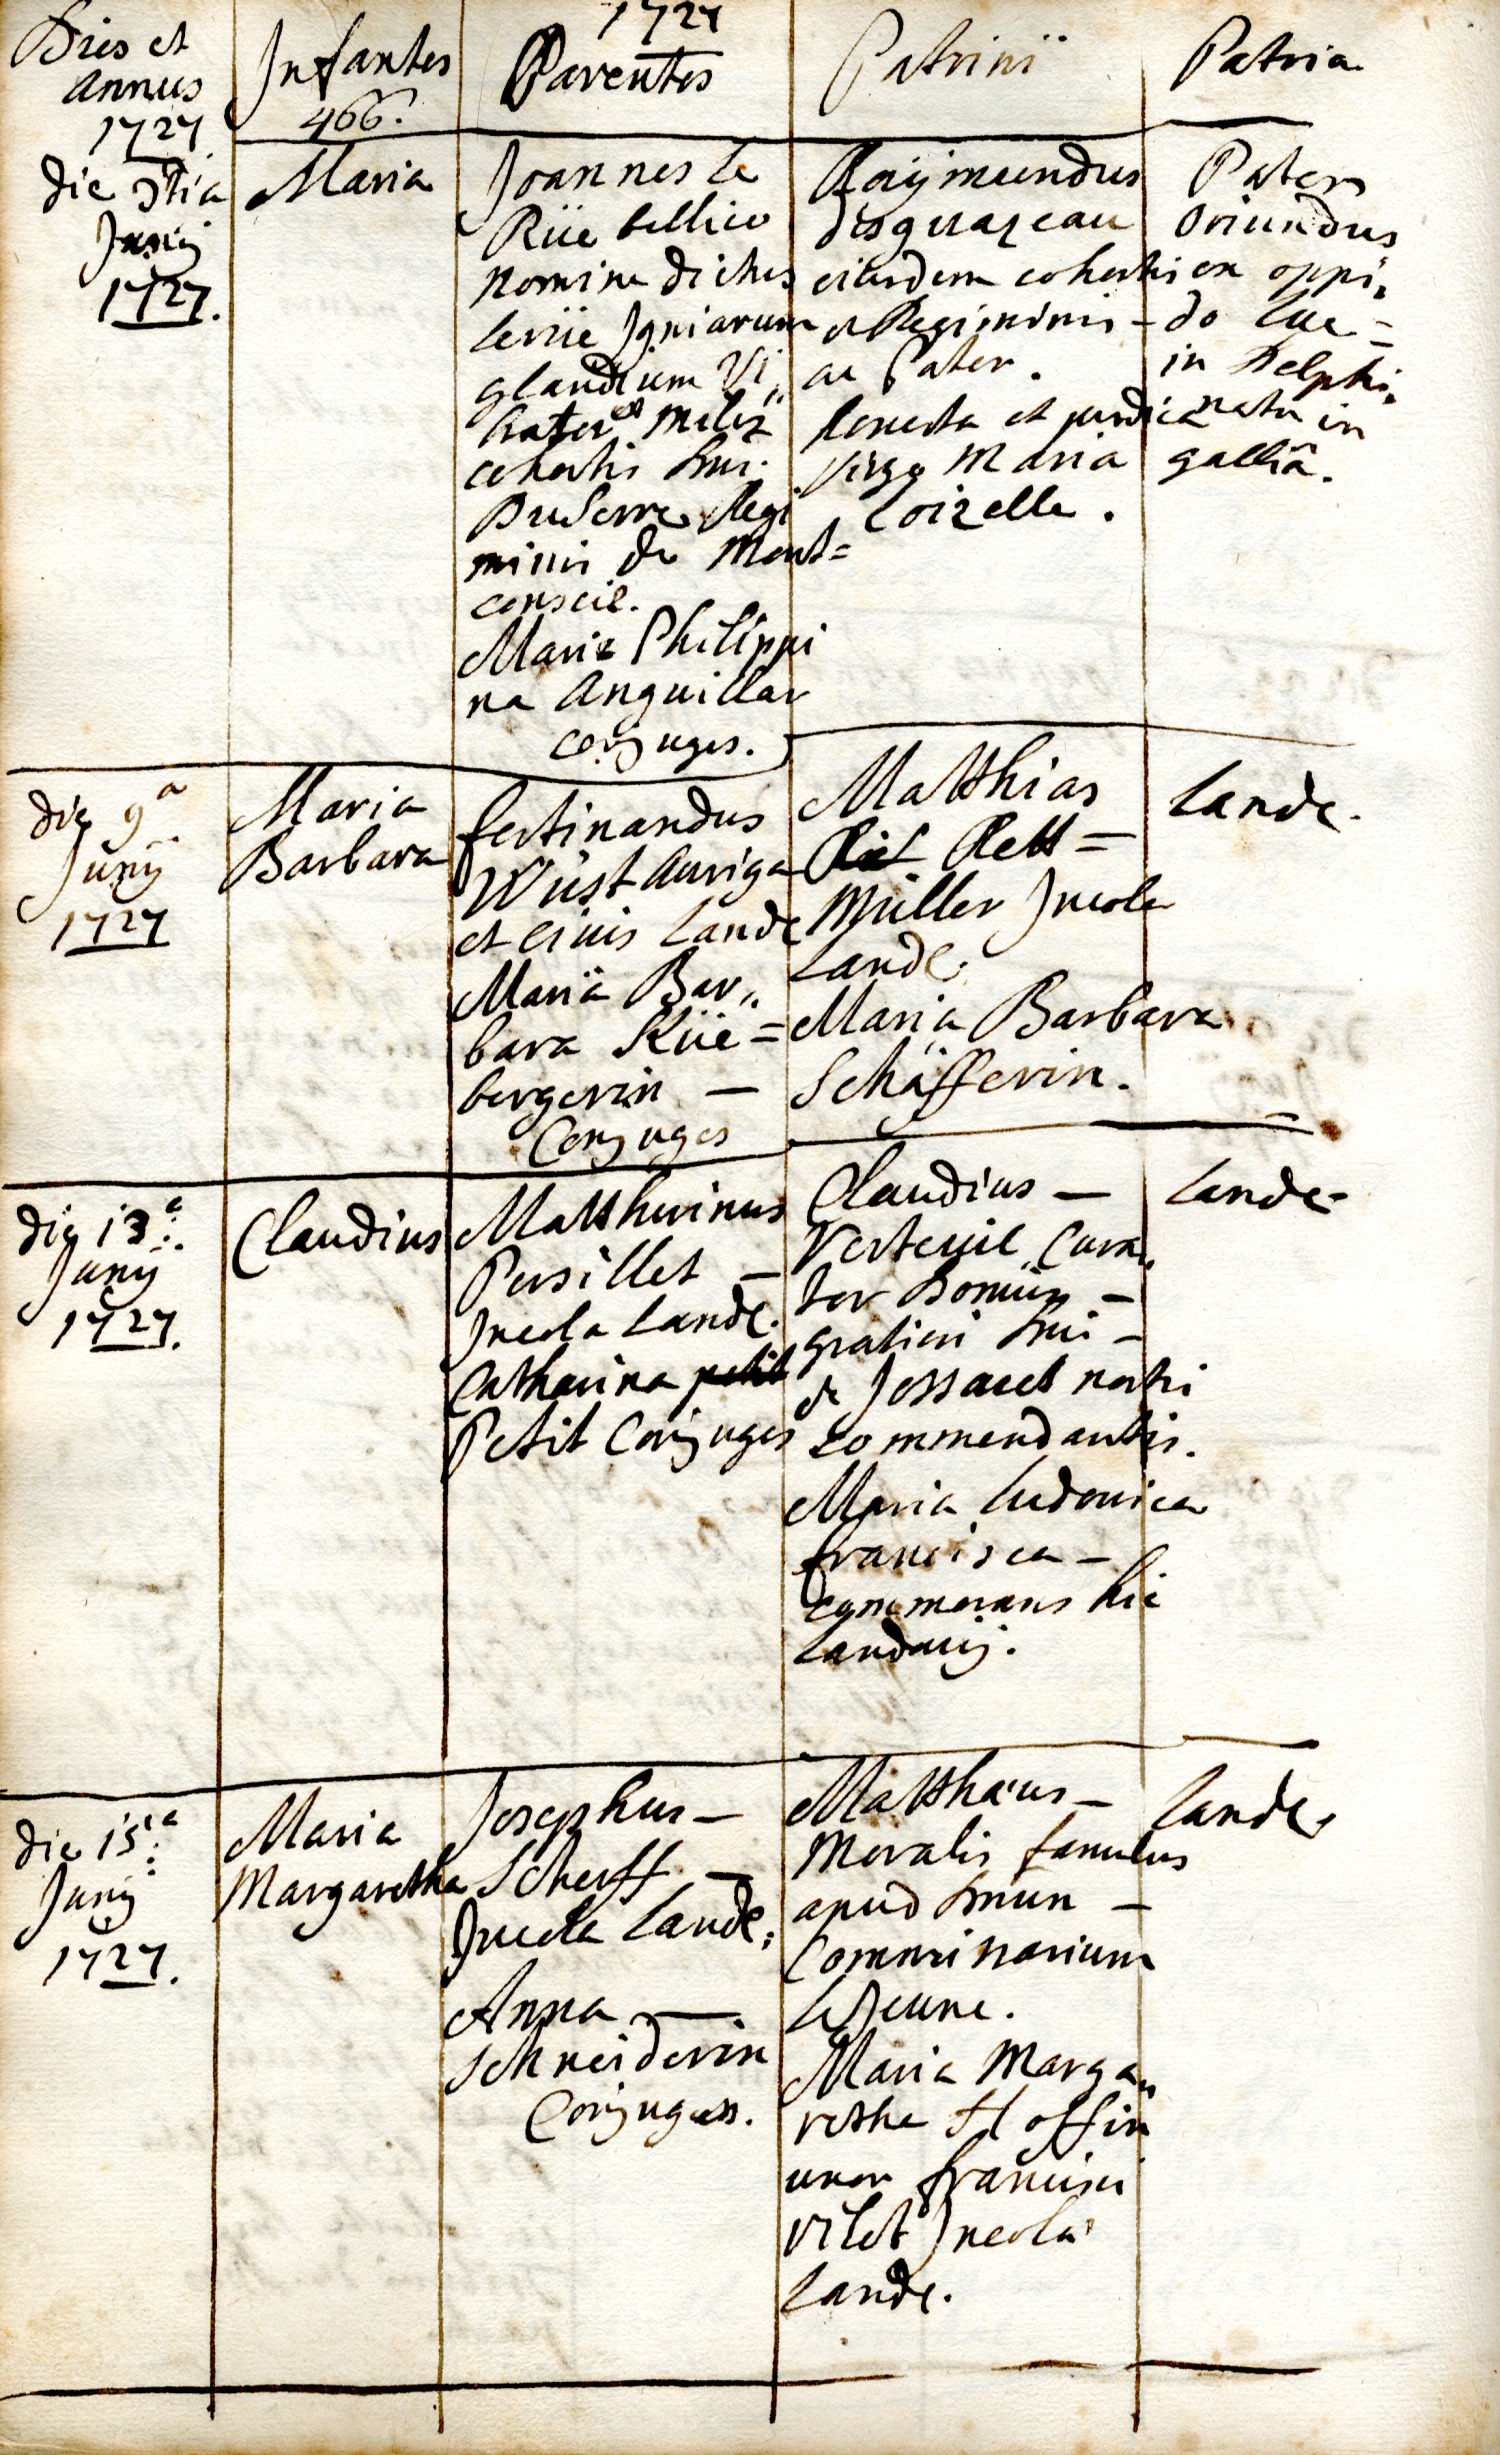 1727
Dies et
Annus
1727
Infantes
466.
Parentes
Patrinii
Patria
die
Junij
1727.
Maria
Joannes le
Rüe bellico
nomine dictus
Igniarum
glandium Vi„
brator et Miles
cohortis Dni.
DuSerre Regi
minis de Mont=
conseil.
Maria Philippi
na Anguillar
conjuges.
Raijmundus
eiusdem cohortis
et Regiminis –
ac Pater.
honesta et pudica
virgo Maria
Loizelle.
Pater
Oriundus
ex oppi„
do Lue=
in Delphi„
natu in
galliâ.
die 9a
Junij
1727
Maria
Barbara
fertinandus
Wüst Auriga
et Civis Land.
Maria Bar„
bara Rüe=
bergerin –
Conjuges
Matthias
Rett=
Müller Incola
Land.
Maria Barbara
Schäfferin.
Lande.
die 13a.
Junij
1727.
Claudius
Matthurinus
Persillet –
Incola Land.
Catharina petit
Petit Conjuges
Claudius –
Verteuil Cura„
tor Domûs –
gratiosi Dni –
de Jossaud nostri
commendantis.
Maria Ludovica
francisca –
commorans hic
Landavij.
Lande.
die 15a.
Junij
1727.
Maria
Margaretha
Josephus –
Scherff –
Incola Land.
Anna –
Schneiderin
Conjuges.
Matthæus –
Moralis famulus
apud Dnum –
Commissarium
leJeune.
Maria Marga„
retha Hoffin
uxor francisci
vilet Incola
Land.
Land.